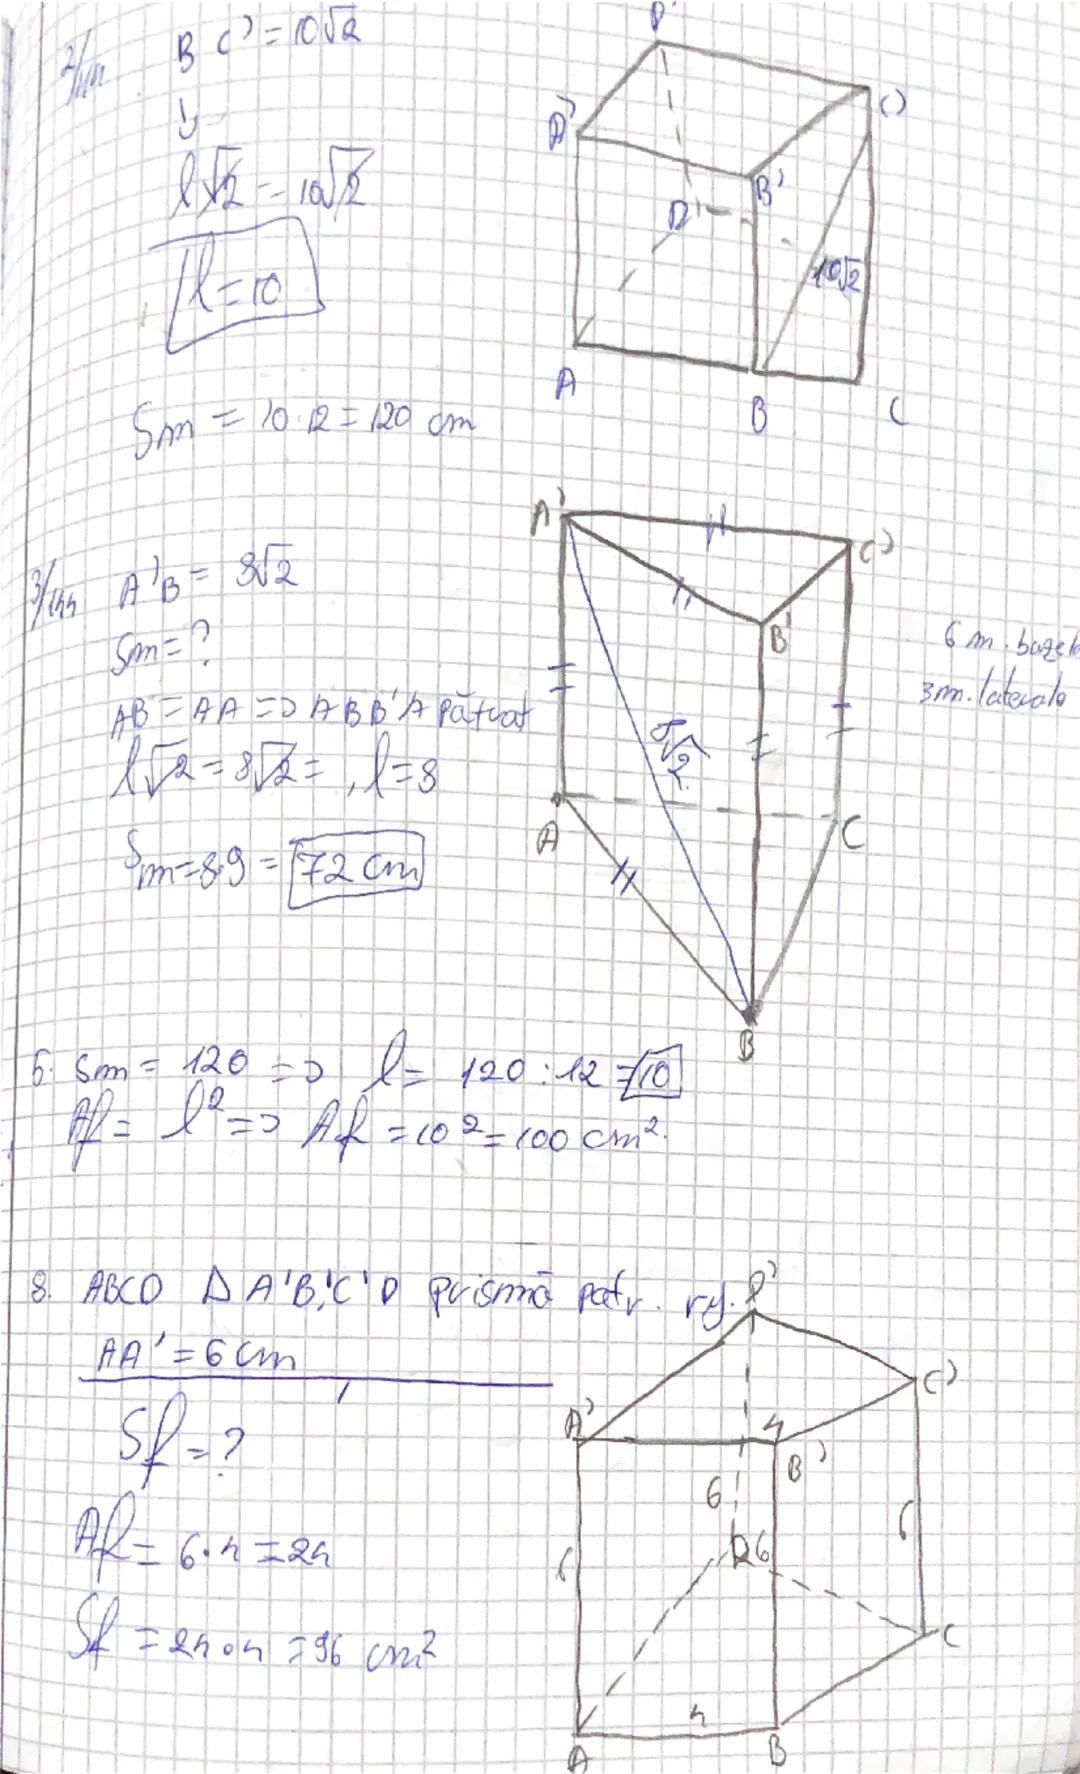 2/144
BC' = 10√2
l√2 = 10√2
l = 10
Sm = 10·12 = 120 cm
D'
A'
C'
B'
D
10√2
A
B
C
3/144
A'B = 8√2
Sm = ?
AB = AA => ABB'A pătrat
l√2 = 8√2 =, l = 8
Sm = 8·9 = 72 cm
A'
C'
B'
8√2
A
C
B
6 m. bazelo
3 m. laterale
5. Sm = 120 => l = 120 : 12 = 10
Af = l² => Af = 10² = 100 cm².
8. ABCD A'B'C'D prismă patr. rg.
AA' = 6 cm
Sf = ?
Af = 6·4 = 24
Sf = 24·4 = 96 cm²
D'
A'
C'
4
B'
6
6
D
6
6
C
4
A
B